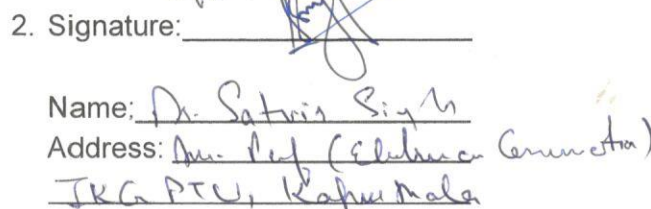 2. Signature:
Name: Dr. Satvir Singh
Address: (Electronics Communication)
IKG PTU, Kapurthala